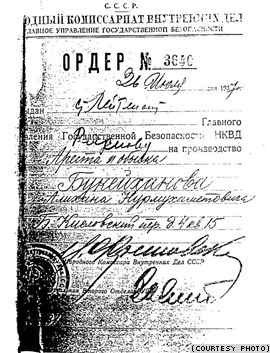 С. С. С. Р.
РОДНЫЙ КОМИССАРИАТ ВНУТРЕННИХ ДЕЛ
ГЛАВНОЕ УПРАВЛЕНИЕ ГОСУДАРСТВЕННОЙ БЕЗОПАСНОСТИ
ОРДЕР №
26 Июля 1937г.
дан Лейтенант Главного
Государственной Безопасности НКВД
на производство
Ареста и обыска
Бунайханова
Нурмухаметовича
Б. Кисловский пер. д 4 кв 15
Народного Комиссара Внутренних Дел СССР
Второго Отдела
(COURTESY PHOTO)